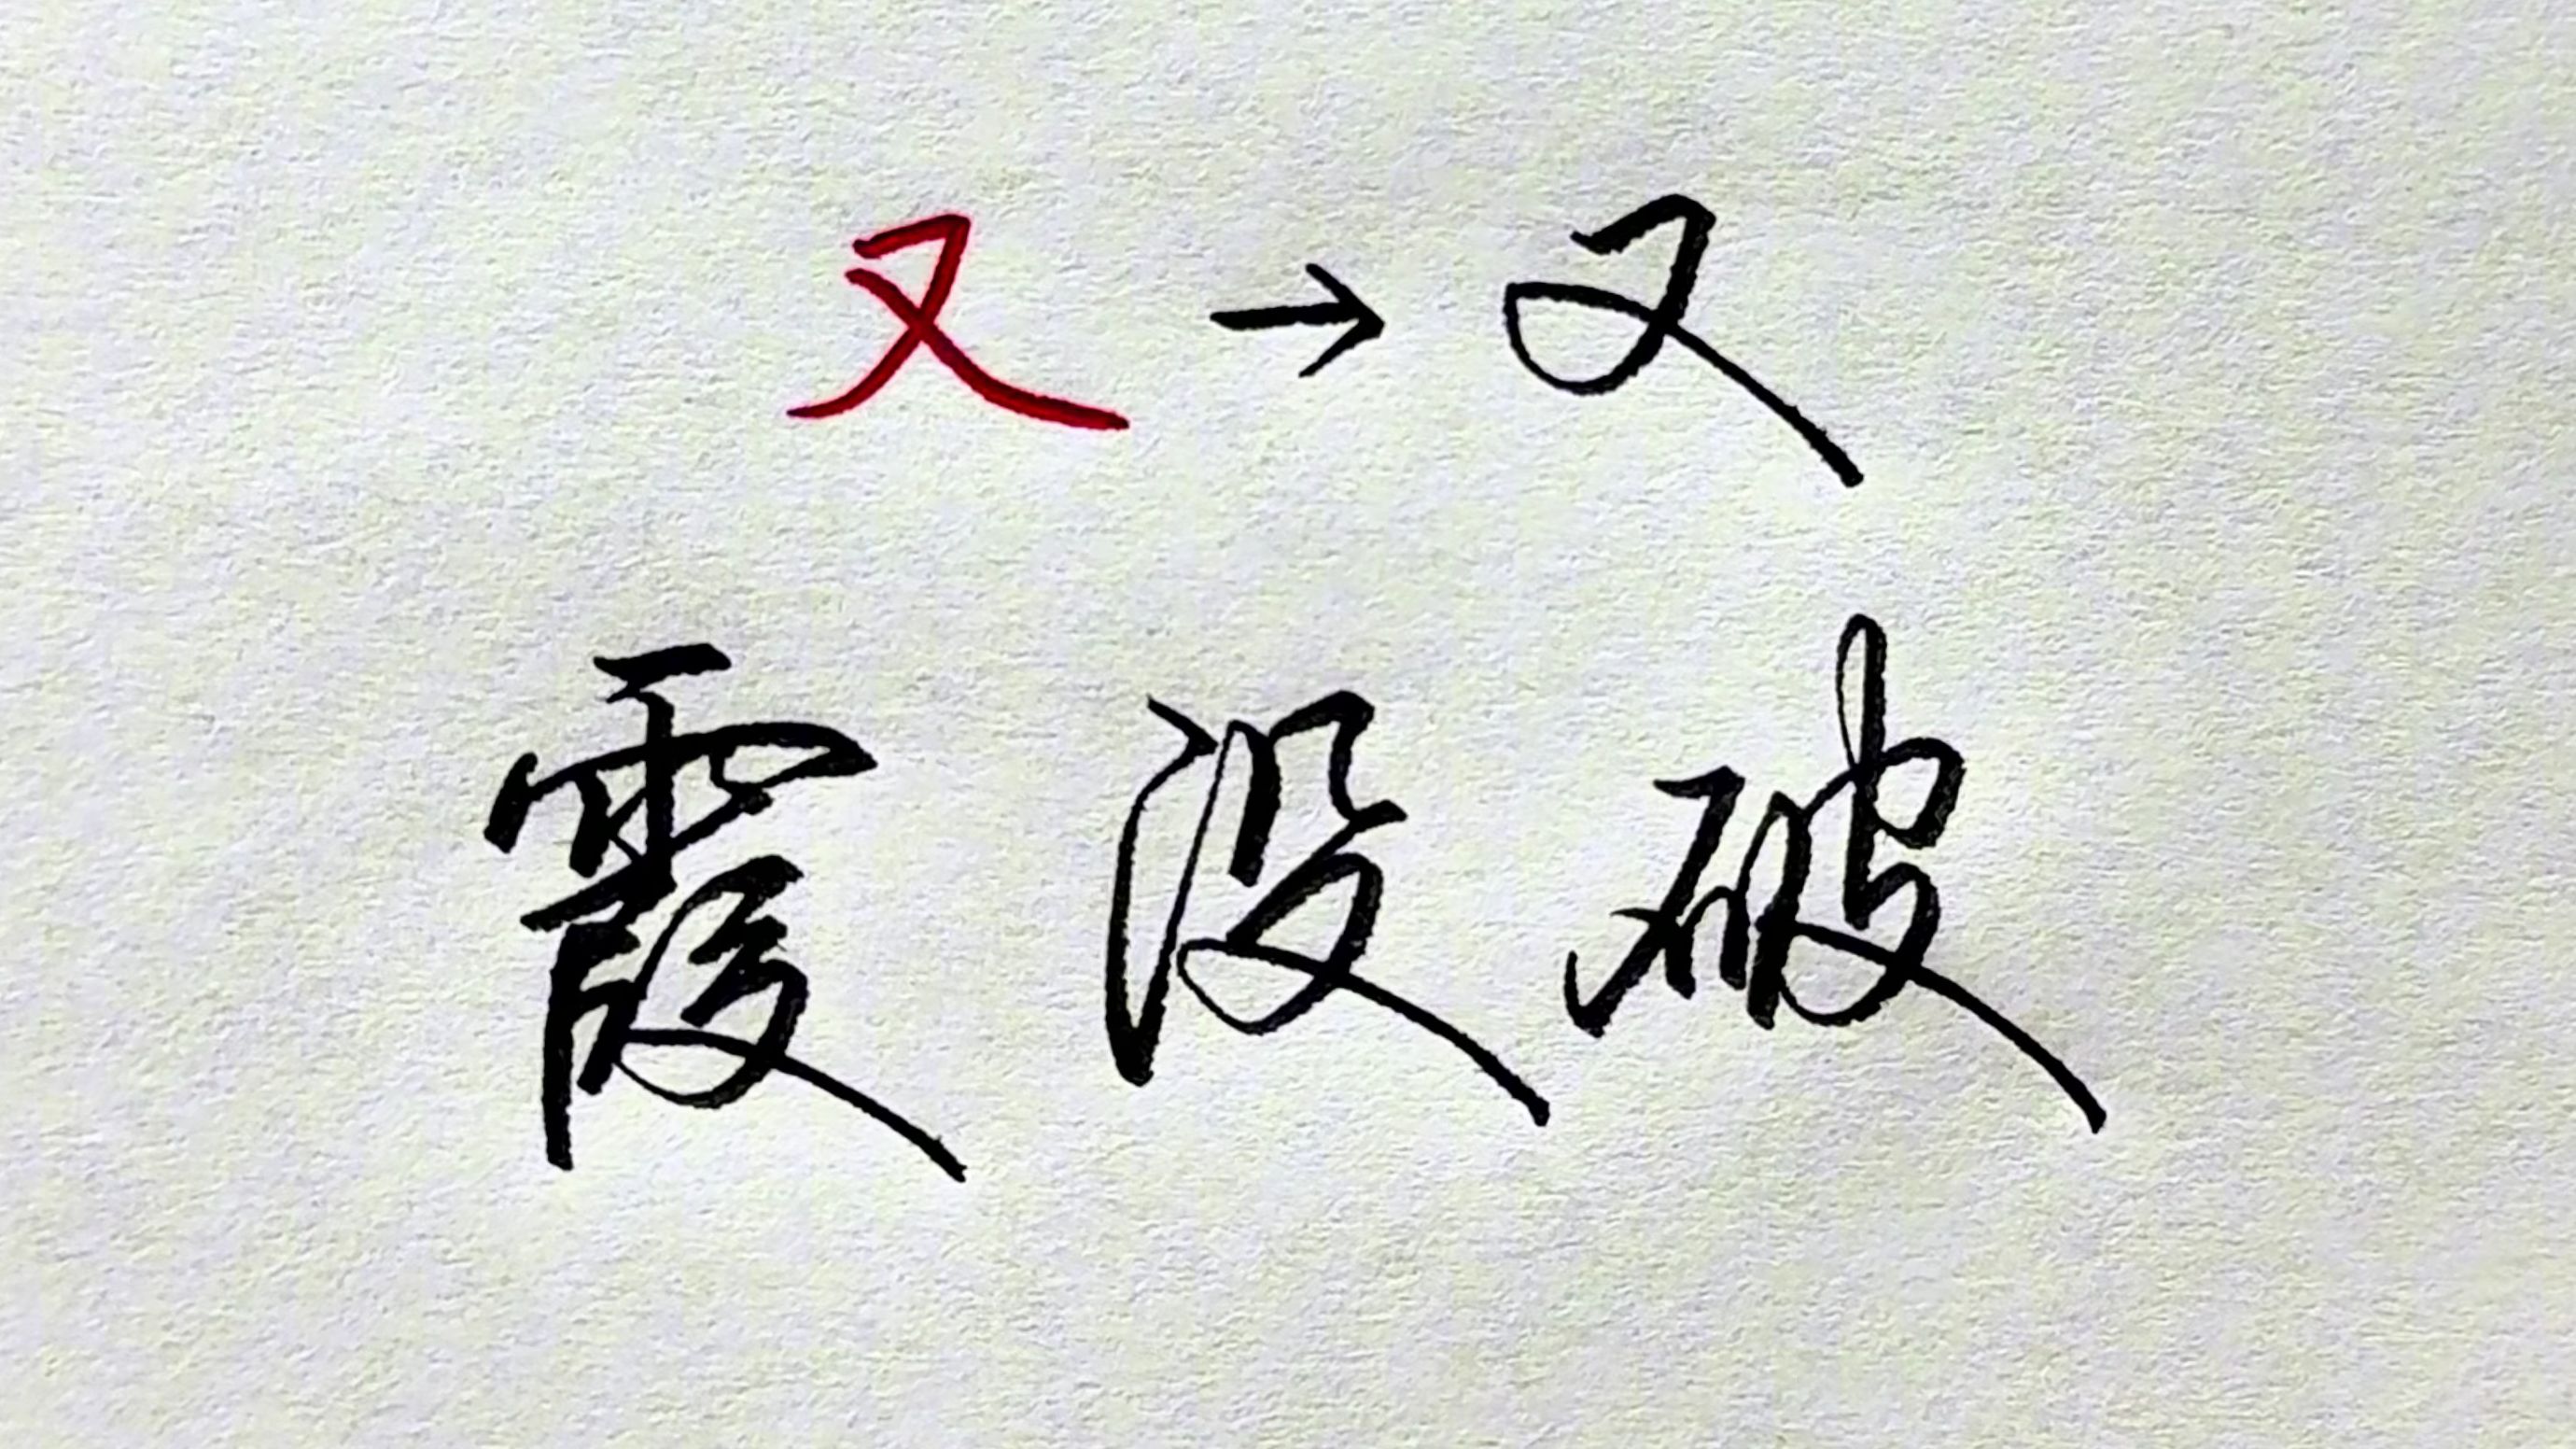 又→又
霞没破